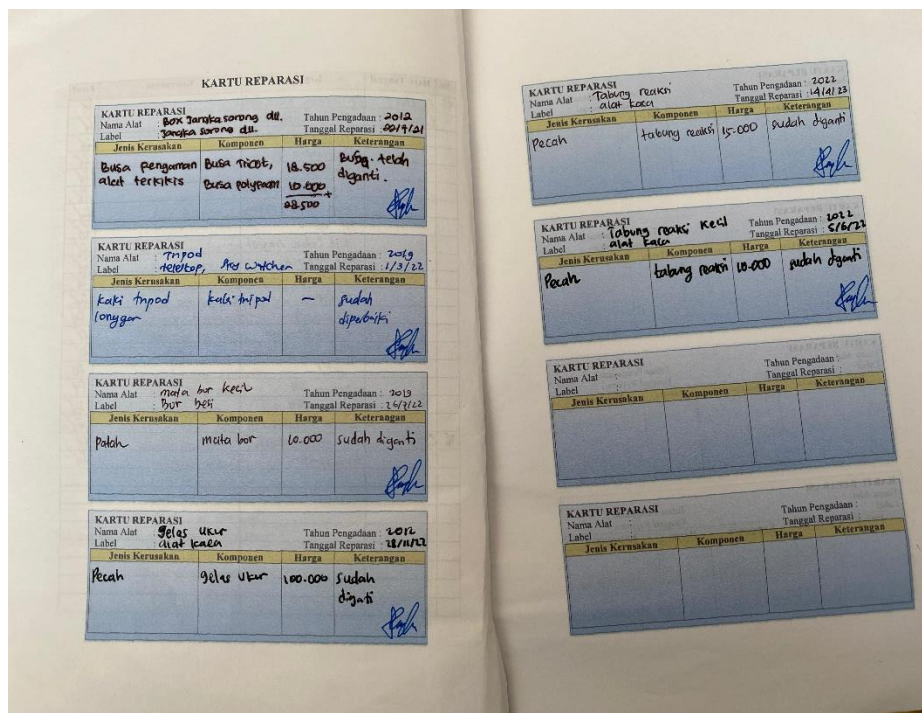 KARTU REPARASI
KARTU REPARASI
Nama Alat : Box Jangka sorong dll. Tahun Pengadaan : 2012
Label : Jangka sorong dll. Tanggal Reparasi :
Jenis Kerusakan Komponen Harga Keterangan
Busa pengaman Busa Tricot, 18.500 Busa telah
alat terkikis Busa polyfoam 10.000 + diganti.
28.500
KARTU REPARASI
Nama Alat : Tripod Tahun Pengadaan : 2019
Label : teleskop, Sky Watcher Tanggal Reparasi : 1/3/22
Jenis Kerusakan Komponen Harga Keterangan
Kaki tripod kaki tripod — sudah
longgar diperbaiki
KARTU REPARASI
Nama Alat : mata bor kecil Tahun Pengadaan : 2019
Label : Bor Tanggal Reparasi : 26/7/22
Jenis Kerusakan Komponen Harga Keterangan
Patah mata bor 10.000 sudah diganti
KARTU REPARASI
Nama Alat : gelas ukur Tahun Pengadaan : 2012
Label : alat kaca Tanggal Reparasi : 28/11/22
Jenis Kerusakan Komponen Harga Keterangan
Pecah gelas ukur 100.000 sudah
diganti
KARTU REPARASI
Nama Alat : Tabung reaksi Tahun Pengadaan : 2022
Label : alat kaca Tanggal Reparasi : 14/4/23
Jenis Kerusakan Komponen Harga Keterangan
Pecah tabung reaksi 15.000 sudah diganti
KARTU REPARASI
Nama Alat : Tabung reaksi Kecil Tahun Pengadaan : 2022
Label : alat kaca Tanggal Reparasi : 5/6/22
Jenis Kerusakan Komponen Harga Keterangan
Pecah tabung reaksi 10.000 sudah diganti
KARTU REPARASI
Nama Alat : Tahun Pengadaan :
Label : Tanggal Reparasi :
Jenis Kerusakan Komponen Harga Keterangan
KARTU REPARASI
Nama Alat : Tahun Pengadaan :
Label : Tanggal Reparasi :
Jenis Kerusakan Komponen Harga Keterangan